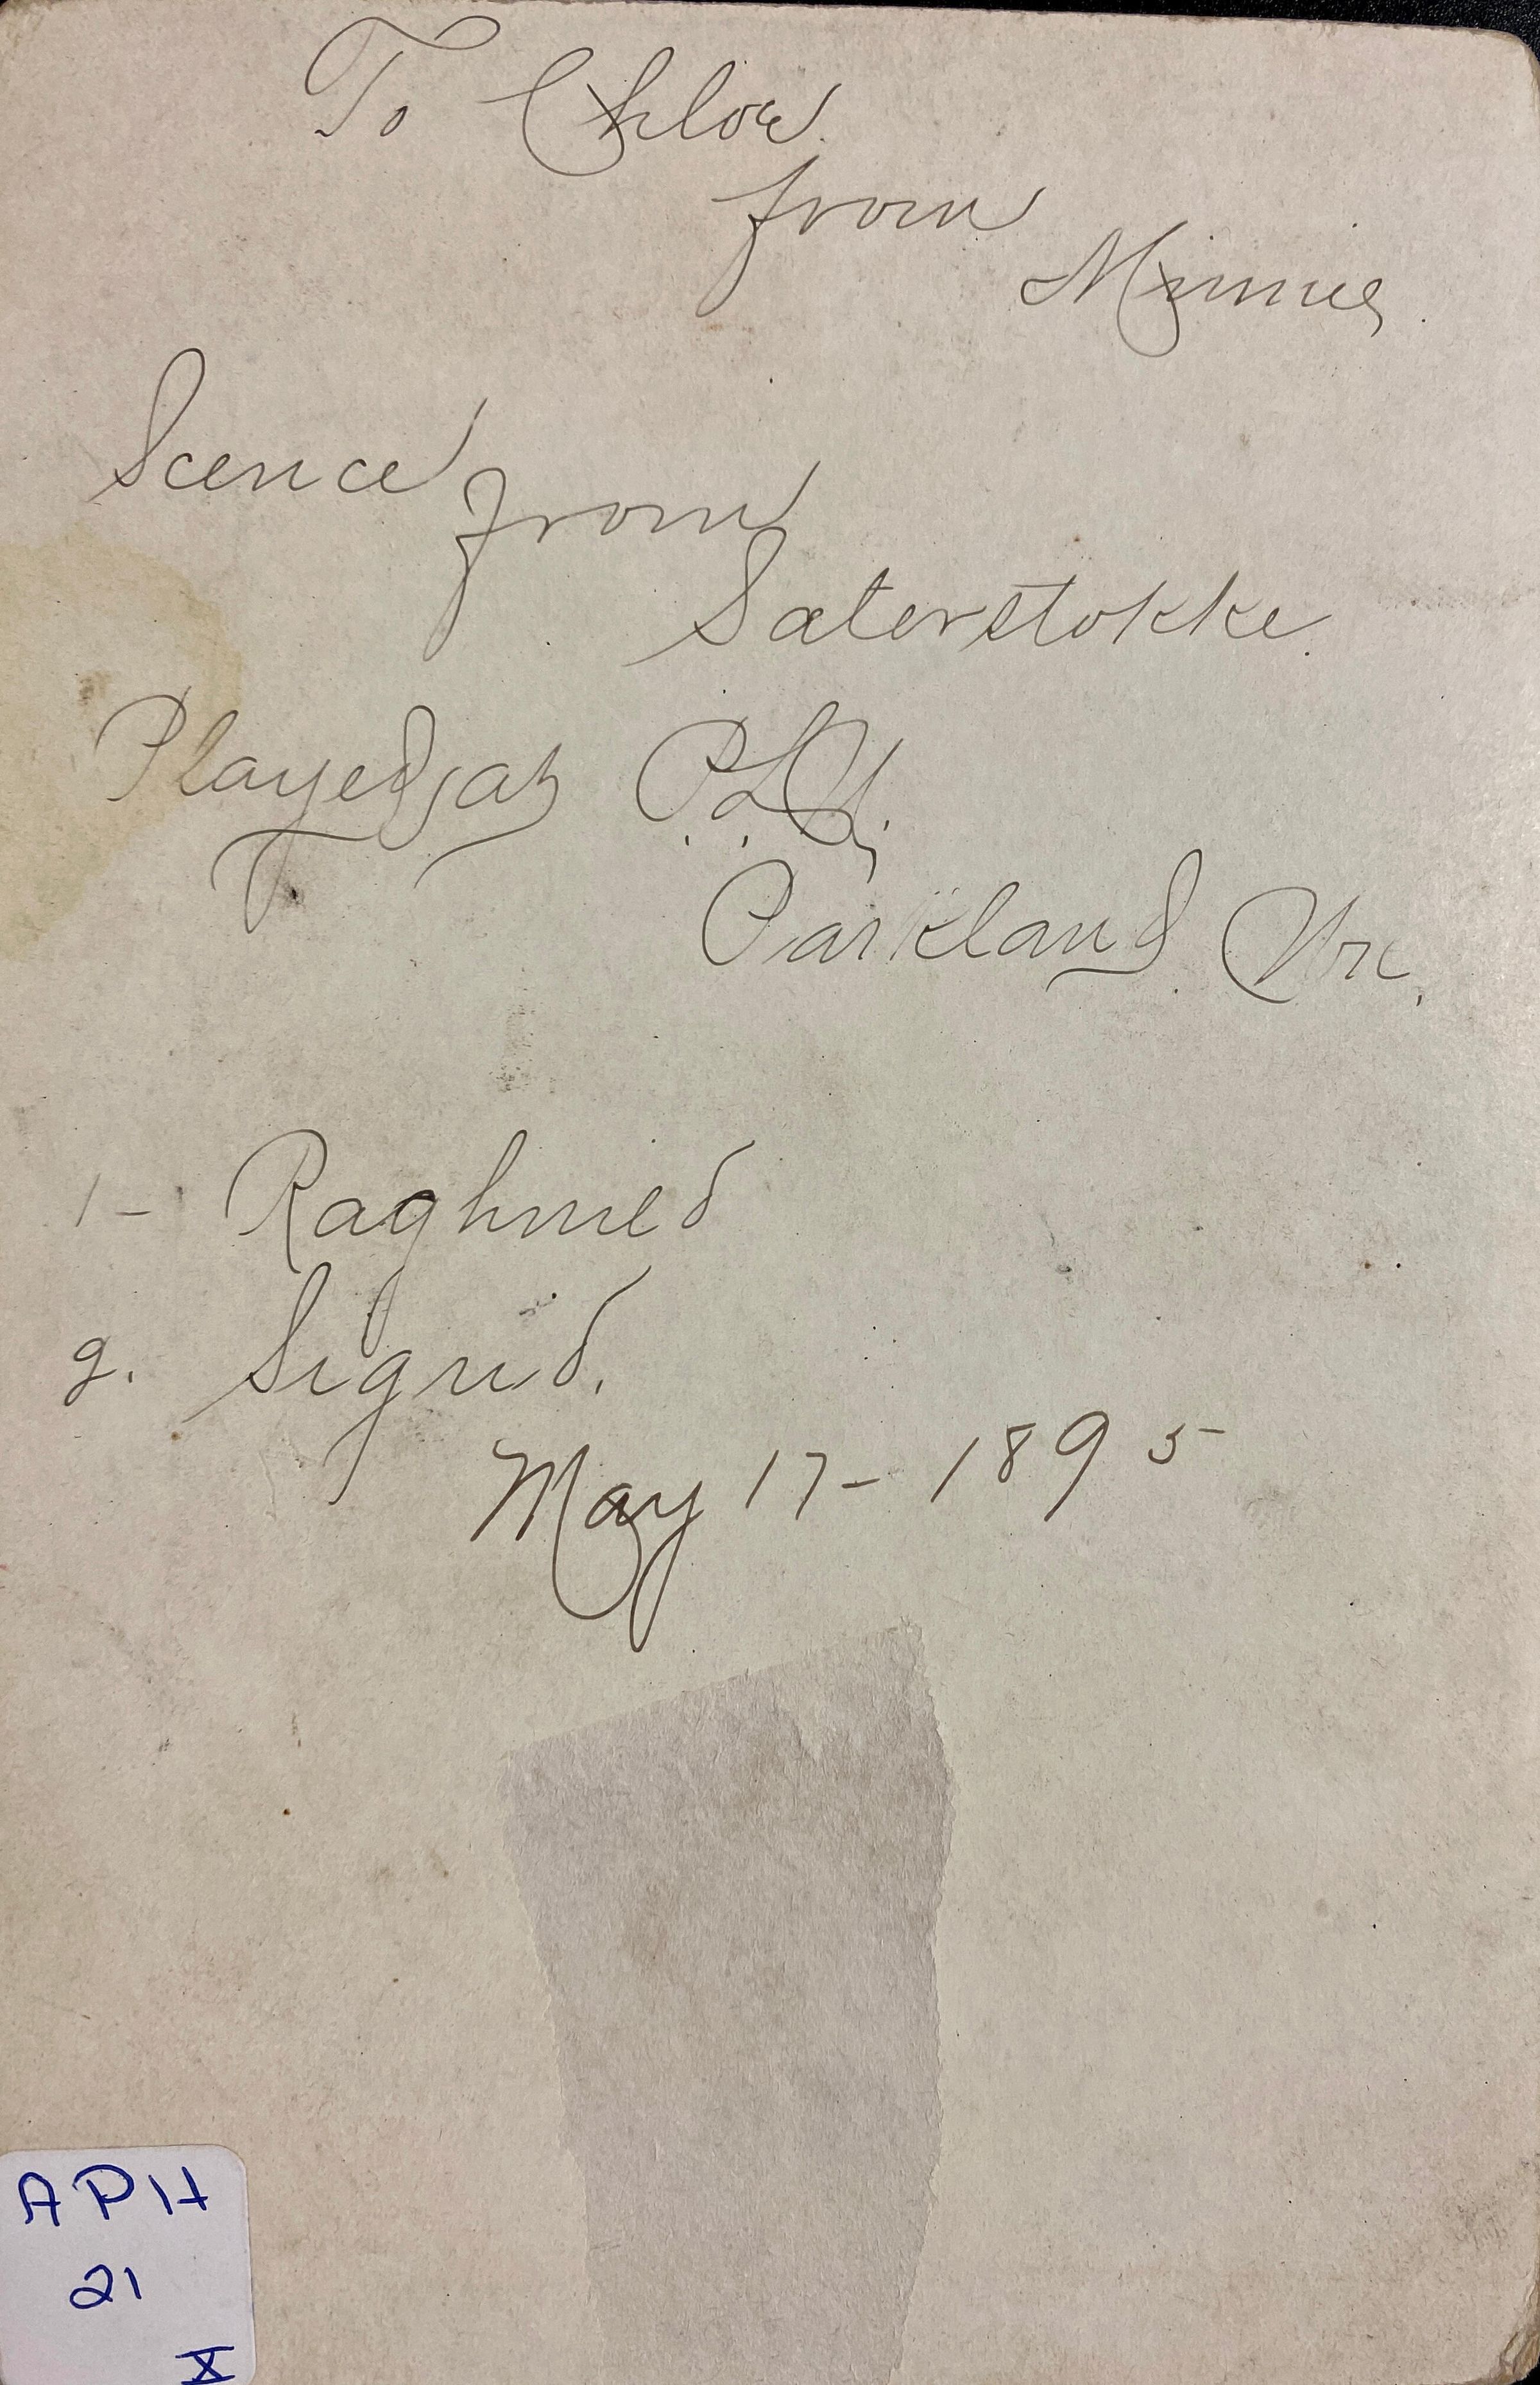 To Chloe.
from
Minnie.
Scence from
Saterstokke.
Played at P.L.U.
Parkland Wn.
1- Raghnild
2. Sigrid.
May 17- 1895
APH
21
X